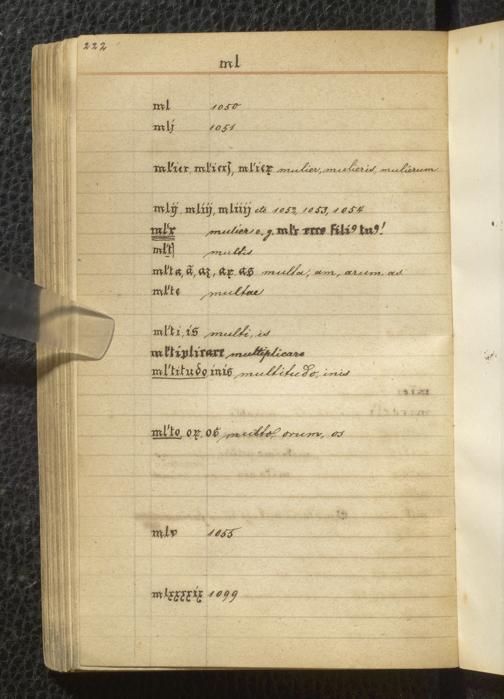 222
ml
ml 1050
mlj 1051
mulier, mulieris, mulierum
mlij, mliij, mliiij etc 1052, 1053, 1054
mulier e. g. mlr ecce filiꝰ tuꝰ!
multis
mlta, ā, aꝝ, as multa, am, arum, as
mlte multae
mlti, is multi, is
mltiplicare multiplicare
mltitudo, inis multitudo, inis
mlto, oꝝ, os multo, orum, os
mlv 1055
mlxxxxix 1099